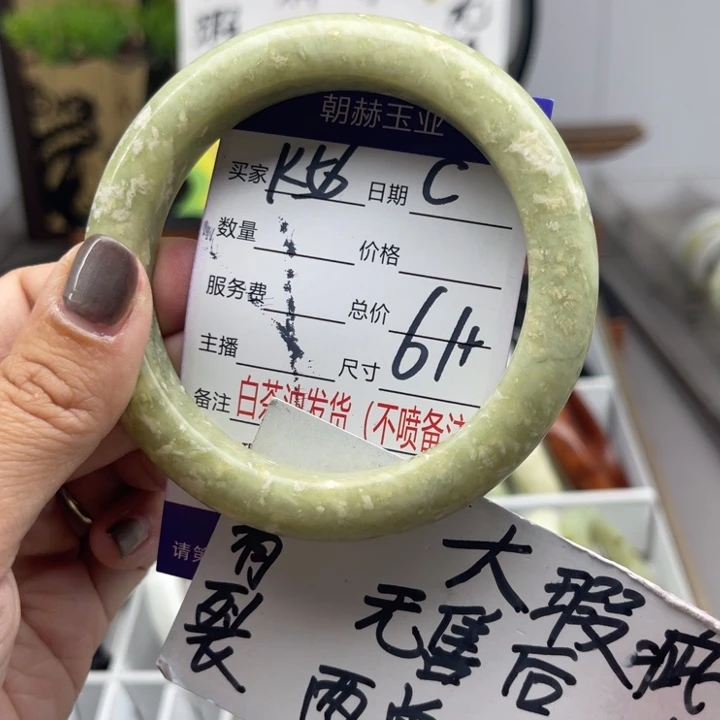 朝赫玉业
买家 K56 日期 C
数量 价格
服务费 总价
主播 尺寸 61+
备注 白茶油发货（不喷备注
请
有裂
大瑕疵
无售后
两